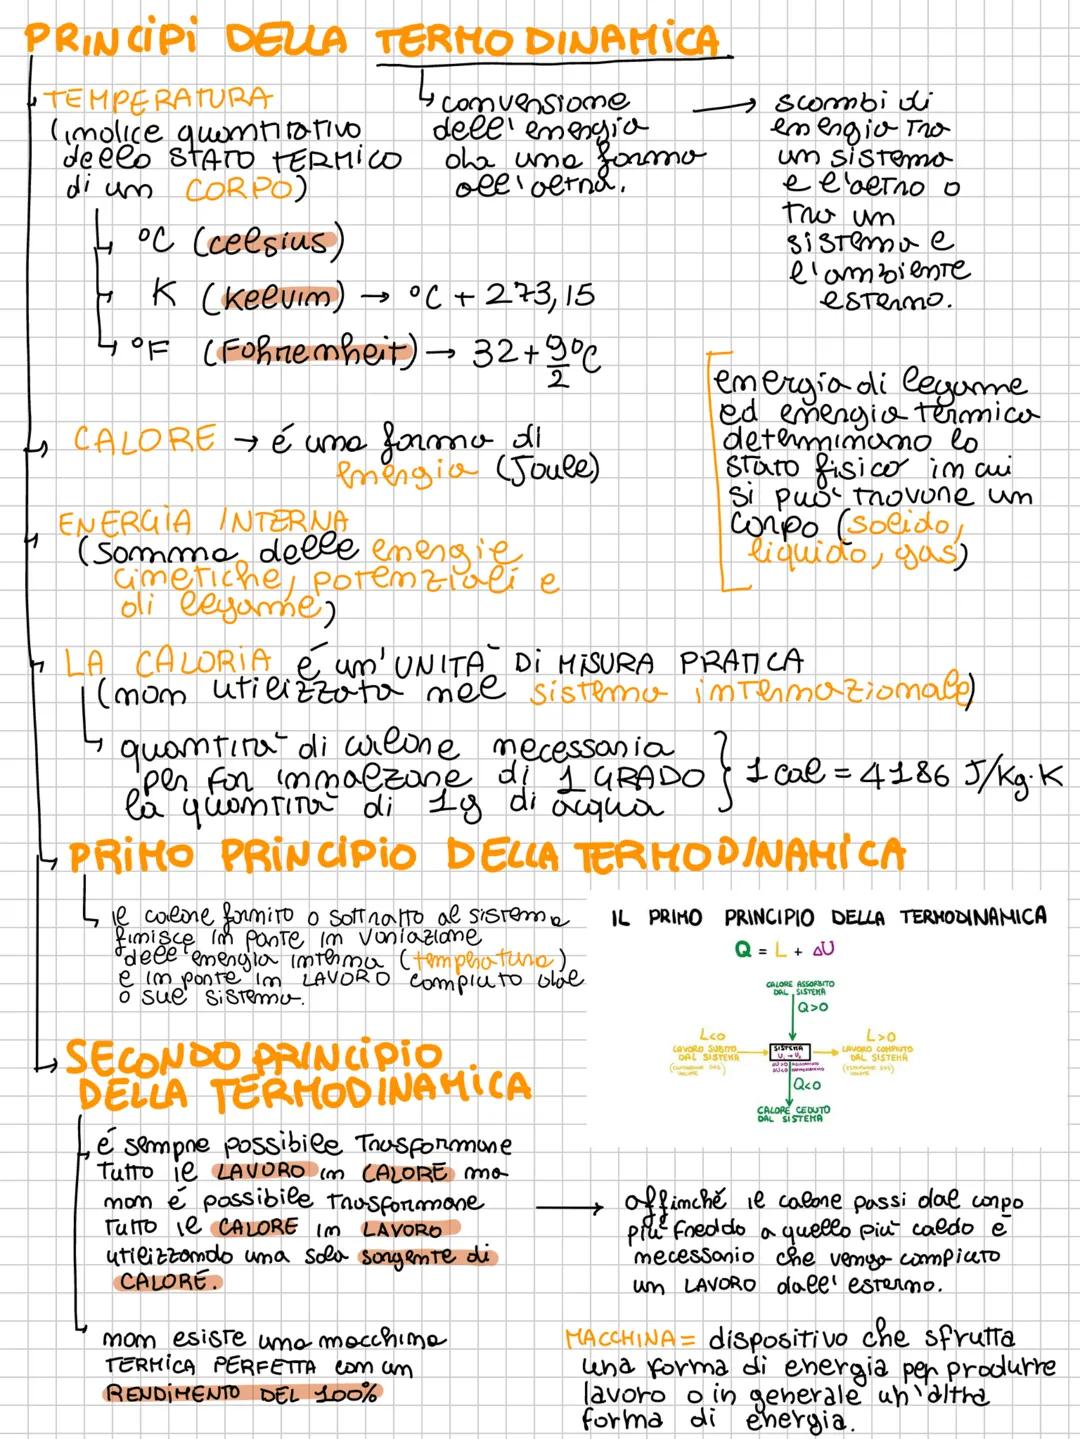 PRINCIPI DELLA TERMODINAMICA
TEMPERATURA
(indice quantitativo
dello STATO TERMICO
di un CORPO)
conversione
dell'energia
da una forma
all'altra.
scambi di
energia tra
un sistema
e l'altro o
tra un
sistema e
l'ambiente
esterno.
°C (celsius)
K (Kelvin) → °C + 273,15
°F (Fahrenheit) → 32 + 9/2 °C
energia di legame
ed energia termica
determinano lo
stato fisico in cui
si può trovare un
corpo (solido,
liquido, gas)
CALORE → é una forma di
energia (Joule)
ENERGIA INTERNA
(somma delle energie
cinetiche, potenziali e
di legame)
LA CALORIA é un'UNITA' DI MISURA PRATICA
(non utilizzata nel sistema internazionale)
quantita' di calore necessaria
per far innalzare di 1 GRADO
la quantita' di 1g di acqua
1 cal = 4186 J/Kg·K
PRIMO PRINCIPIO DELLA TERMODINAMICA
il calore fornito o sottratto al sistema
finisce in parte in variazione
dell'energia interna (temperatura)
e in parte in LAVORO compiuto dal
o sul sistema.
IL PRIMO PRINCIPIO DELLA TERMODINAMICA
Q = L + ΔU
CALORE ASSORBITO
DAL SISTEMA
Q>0
L<0
LAVORO SUBITO
DAL SISTEMA
SISTEMA
L>0
LAVORO COMPIUTO
DAL SISTEMA
Q<0
CALORE CEDUTO
DAL SISTEMA
SECONDO PRINCIPIO
DELLA TERMODINAMICA
é sempre possibile Trasformare
Tutto il LAVORO in CALORE ma
non é possibile Trasformare
Tutto il CALORE in LAVORO
utilizzando una sola sorgente di
CALORE.
affinché il calore passi dal corpo
più freddo a quello più caldo è
necessario che venga compiuto
un LAVORO dall'esterno.
non esiste una macchina
TERMICA PERFETTA con un
RENDIMENTO DEL 100%
MACCHINA = dispositivo che sfrutta
una forma di energia per produrre
lavoro o in generale un'altra
forma di energia.